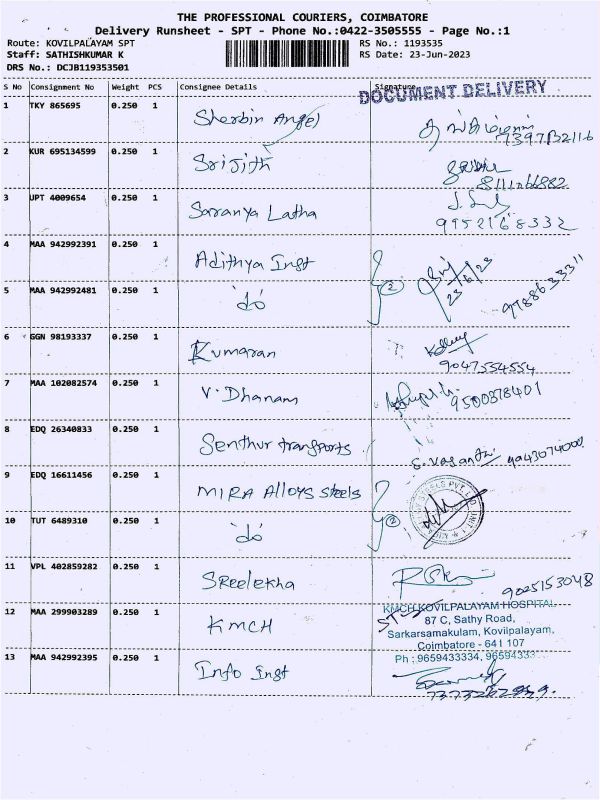 THE PROFESSIONAL COURIERS, COIMBATORE
Delivery Runsheet - SPT - Phone No.:0422-3505555 - Page No.:1
Route: KOVILPALAYAM SPT RS No.: 1193535
Staff: SATHISHKUMAR K RS Date: 23-Jun-2023
DRS No.: DCJB119353501
S No Consignment No Weight PCS Consignee Details Signature
DOCUMENT DELIVERY
1 TKY 865695 0.250 1 Sherbin Angel
2 KUR 695134599 0.250 1 Srijith
8111066882
3 UPT 4009654 0.250 1 Saranya Latha
9952168332
4 MAA 942992391 0.250 1 Adithya Inst
2 23/6/23
5 MAA 942992481 0.250 1 do
6 GGN 98193337 0.250 1 Kumaran
9047554554
7 MAA 102082574 0.250 1 V. Dhanam
9500378401
8 EDQ 26340833 0.250 1 Senthur transports
S. Vasanthi
9 EDQ 16611456 0.250 1 MIRA Alloys steels
10 TUT 6489310 0.250 1 do 2
11 VPL 402859282 0.250 1 Sreelekha
9025153048
12 MAA 299903289 0.250 1 KMCH
KMCH KOVILPALAYAM HOSPITAL
87 C, Sathy Road,
Sarkarsamakulam, Kovilpalayam,
Coimbatore - 641 107
Ph : 9659433334, 96594333
13 MAA 942992395 0.250 1 Info Inst